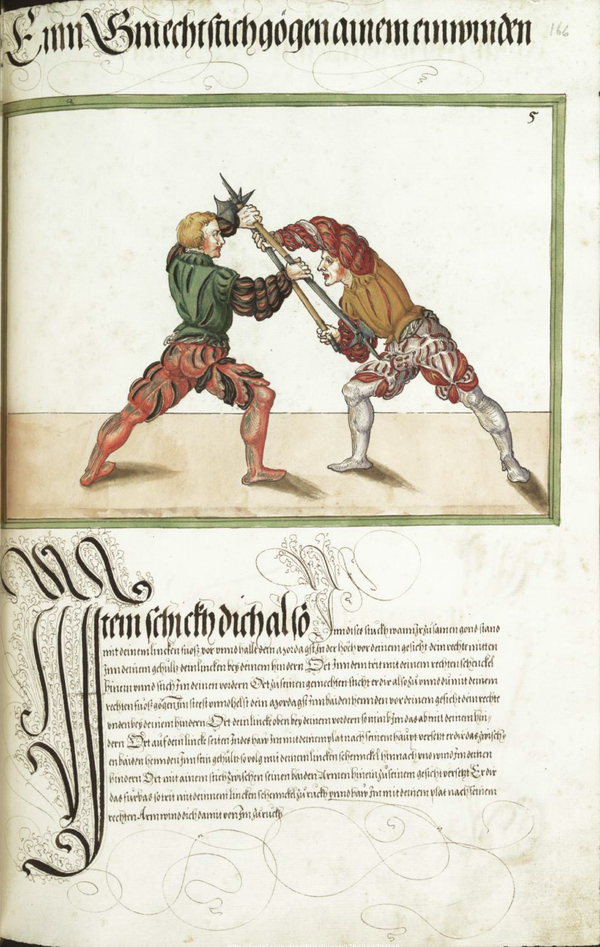 Einn Gmecht stich gögen ainem einwinden
166
5
Item schickh dich also Inn dises stuckh wann Ir zusamen gond stand
mit deinem lincken fuoß vor vnnd halt dein agst In der höch vor deinem gesicht dein rechte mitten
Inn deinem gehültz dein lincken bey deinem hindern Ort Inn dem trit mit deinem rechten schenckel
hinein vnnd stich Im deinen vordern Ort zu seinen gemechten sticht er dir also zu vnnd du mit deinem
rechten fuoß gögen Im steest vnnd helst dein agst Inn baiden henden vor deinem gesicht dein rechte
vnden bey deinem hindern Ort dein linck oben bey deinem vordern so nimb Im das ab mit deinem hin¬
dern Ort auf dein lincke seiten Indes haw Im mit deinem plat nach seinem haupt versetzt er dir das zwisch¬
en baiden henden Inn sein gehültz so volg mit deinem lincken schennckel hinnach vnd wind Im deinen
hindern Ort mit ainem stich zwischen seinen baiden Armen hinein zu seinem gesicht versetzt Er dir
das fürbas so trit mit deinnem lincken schennckel zuruckh vnnd haw Im mit deinem plat nach seinem
rechten Arm vnnd zich damit von Im zuruckh